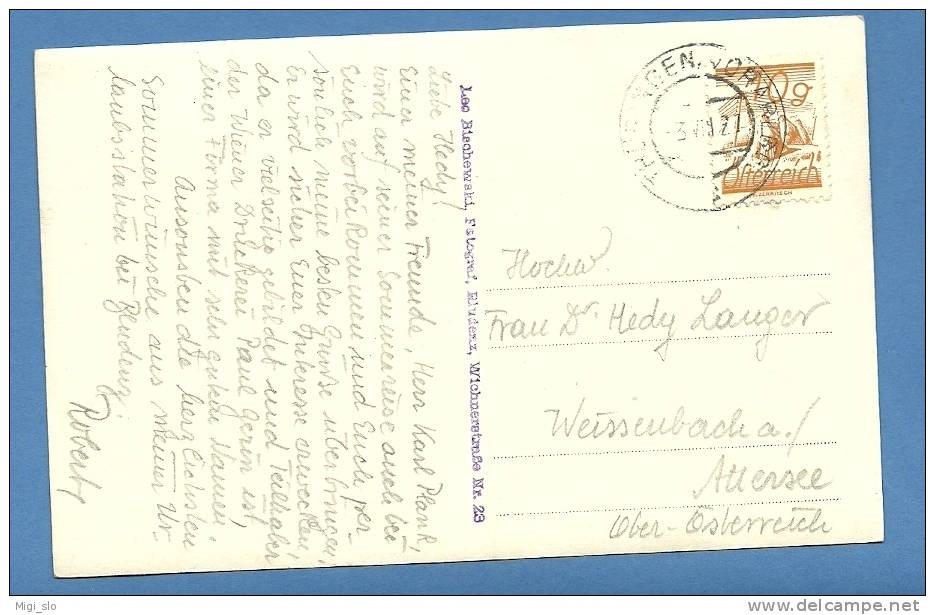 Liebe Hedy!
Einer meiner Freunde, Herr Karl Plank,
wird auf seiner Sommerreise auch bei
Euch vorbeikommen und Euch per-
sönlich meine besten Grüße überbringen,
Er wird sicher Euer Interesse erwecken,
da er vielseitig gebildet und Teilhaber
der Wiener Druckerei Paul Gerin ist,
einer Firma mit sehr gutem Namen.
Ansonsten die herzlichsten
Sommerwünsche aus meiner Ur-
laubsstation bei Bludenz.
Robert
Leo Bischewski, Fotograf, Bludenz, Wichnerstraße Nr. 23
10g
Österreich
Hochw.
Frau Dr. Hedy Langer
Weissenbach a./
Attersee
Ober-Österreich
Migi_slo
delcampe.net